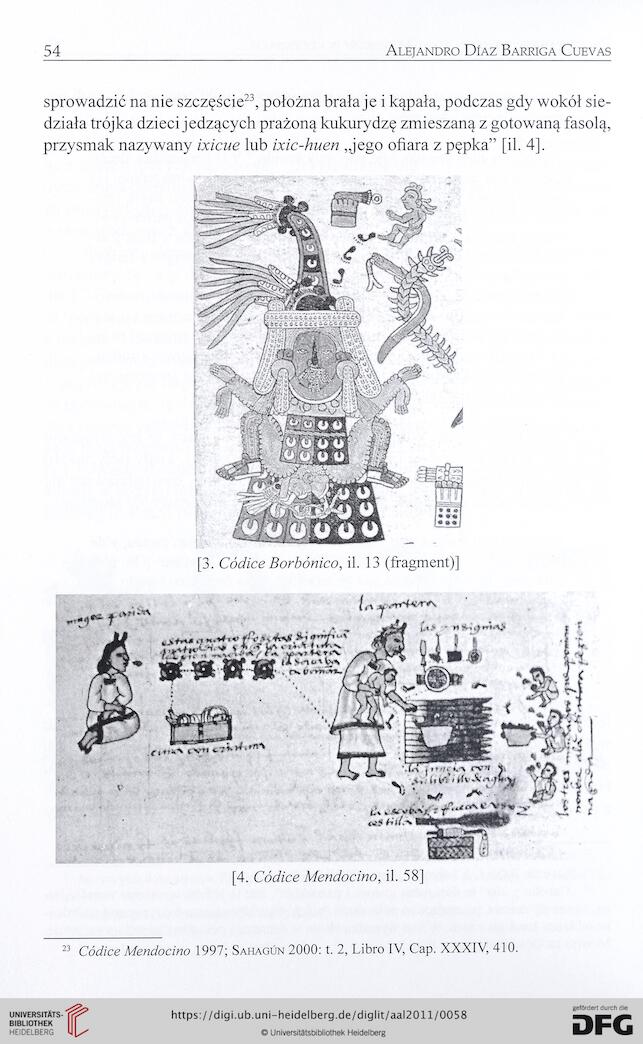 54
ALEJANDRO DÍAZ BARRIGA CUEVAS
sprowadzić na nie szczęście²³, położna brała je i kąpała, podczas gdy wokół sie-
działa trójka dzieci jedzących prażoną kukurydzę zmieszaną z gotowaną fasolą,
przysmak nazywany ixicue lub ixic-huen „jego ofiara z pępka” [il. 4].
[3. Códice Borbónico, il. 13 (fragment)]
muger parida
la partera
las ynsignias
estas quatro
la partera
cuna con criatura
la escoba
[4. Códice Mendocino, il. 58]
²³ Códice Mendocino 1997; SAHAGÚN 2000: t. 2, Libro IV, Cap. XXXIV, 410.
UNIVERSITÄTS-
BIBLIOTHEK
HEIDELBERG
https://digi.ub.uni-heidelberg.de/diglit/aal2011/0058
© Universitätsbibliothek Heidelberg
gefördert durch die
DFG